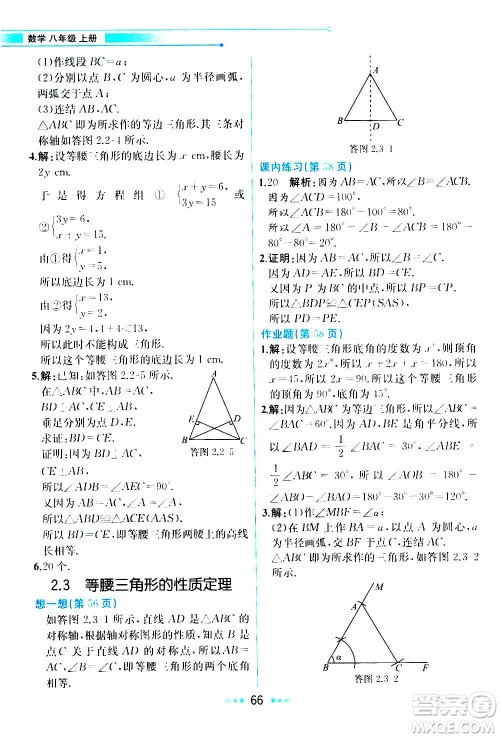 数学 八年级 上册
(1)作线段 BC=a;
(2)分别以点 B,C 为圆心,a 为半径画弧,
两弧交于点 A;
(3)连结 AB,AC.
△ABC 即为所求作的等边三角形,其三条对
称轴如答图 2.2-4 所示.
4.解:设等腰三角形的底边长为 x cm,腰长为
2y cm.
于是得方程组①{3y=6,
x+y=15或
②{3y=15,
x+y=6.
由①得{x=13,
y=2.
所以底边长为 13 cm.
由②得{x=1,
y=5.
所以底边长为 1 cm.
因为 2+2=4<13,
所以此时不能构成三角形.
所以这个等腰三角形的底边长为 1 cm.
5.解:已知:如答图 2.2-5 所示.
在△ABC 中,AB=AC,
BD⊥AC,CE⊥AB,
垂足分别为点 D,E.
求证:BD=CE.
证明:因为 BD⊥AC,
CE⊥AB,
所以∠ADB=∠AEC=90°.
又因为∠A=∠A,AB=AC,
所以△ABD≌△ACE(AAS).
所以 BD=CE.
所以这个等腰三角形两腰上的高线
长相等.
A
E
D
B
C
答图 2.2-5
6.20 个.
2.3 等腰三角形的性质定理
想一想(第 56 页)
如答图 2.3-1 所示,直线 AD 为△ABC
的对称轴,根据轴对称图形的性质,对称轴
两侧的部分能够完全重合,可知
∠B=∠C.所以等腰三角形的两个底角
相等.
A
B
D
C
答图 2.3-1
课内练习(第 58 页)
1.20 解析:因为 AB=AC,所以∠B=∠C.
因为∠ACD=100°,
所以∠ACB=180°-100°=80°.
所以∠B=80°.所以∠A=180°-∠B-∠C=
180°-80°-80°=20°.
2.证明:因为 AB=AC,所以∠B=∠C.
又因为 P 为 BC 的中点,所以 BP=CP.
又因为 BD=CE,
所以△BDP≌△CEP(SAS).
所以 PD=PE.
作业题(第 58 页)
1.解:设等腰三角形底角的度数为 x°,则顶角
的度数为 2x°.所以 x+x+2x=180.所以
x=45,所以 2x=90.所以这个等腰三角形
的顶角为 90°,底角为 45°.
2.解:因为 AD,BE 是△ABC 的角平分线,所
以∠BAD=1/2∠BAC,∠ABE=
1/2∠ABC.因为△ABC 是等边三角形,所以
∠BAC=∠ABC=60°.所以∠BAD=
∠ABE=30°.
3.解:(1)作∠MBF=∠α.
(2)在 BM 上作 BA=a,以点 A 为圆心,
a 为半径画弧,交 BF 于点 C,连结
AC.△ABC 即为所求作,如答图 2.3-2
所示.
M
A
B
α
C
F
答图 2.3-2
66
作业精灵